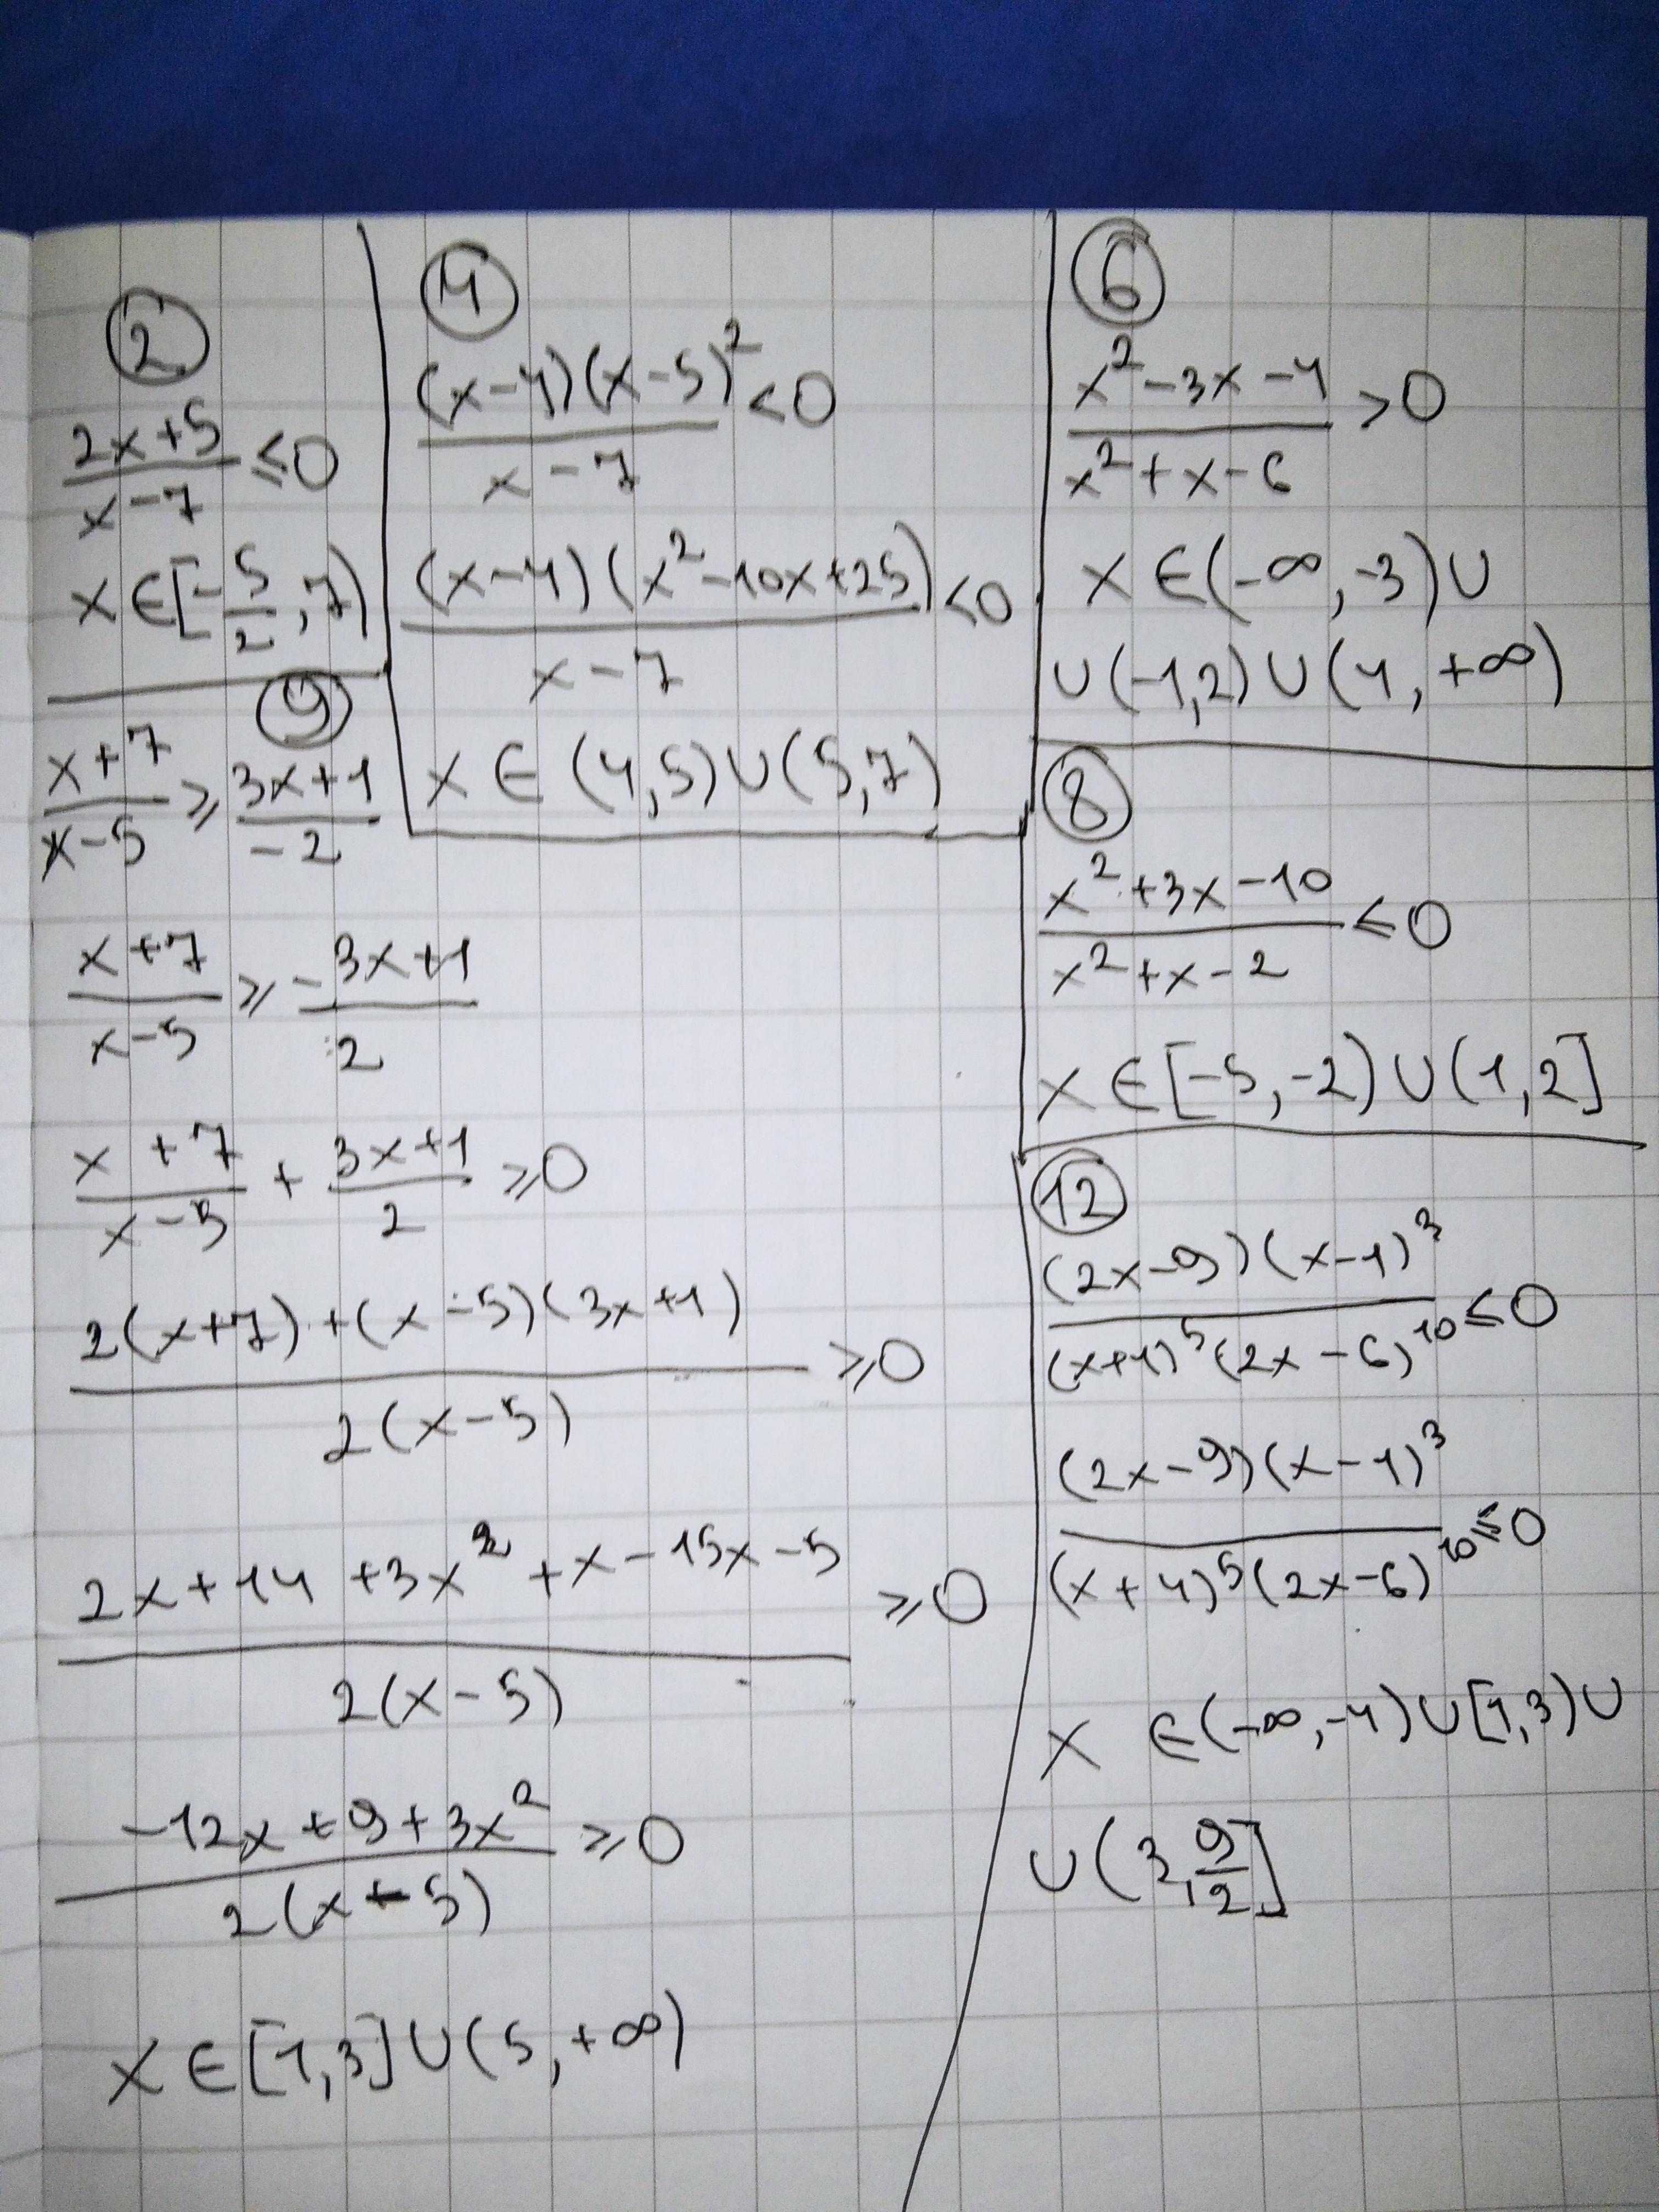 ②
(2x+5)/(x-7) ≤ 0
x ∈ [-5/2, 7)
⑨
(x+7)/(x-5) ≥ (3x+1)/(-2)
(x+7)/(x-5) ≥ -(3x+1)/2
(x+7)/(x-5) + (3x+1)/2 ≥ 0
(2(x+7)+(x-5)(3x+1))/(2(x-5)) ≥ 0
(2x+14+3x²+x-15x-5)/(2(x-5)) ≥ 0
(-12x+9+3x²)/(2(x-5)) ≥ 0
x ∈ [1,3] ∪ (5, +∞)
④
((x-4)(x-5)²)/(x-7) < 0
((x-4)(x²-10x+25))/(x-7) < 0
x ∈ (4,5) ∪ (5,7)
⑥
(x²-3x-4)/(x²+x-6) > 0
x ∈ (-∞, -3) ∪
∪ (-1,2) ∪ (4, +∞)
⑧
(x²+3x-10)/(x²+x-2) ≤ 0
x ∈ [-5, -2) ∪ (1, 2]
⑫
((2x-9)(x-1)³)/((x+4)⁵(2x-6)¹⁰) ≤ 0
((2x-9)(x-1)³)/((x+4)⁵(2x-6)¹⁰) ≤ 0
x ∈ (-∞, -4) ∪ [1,3) ∪
∪ (3, 9/2]